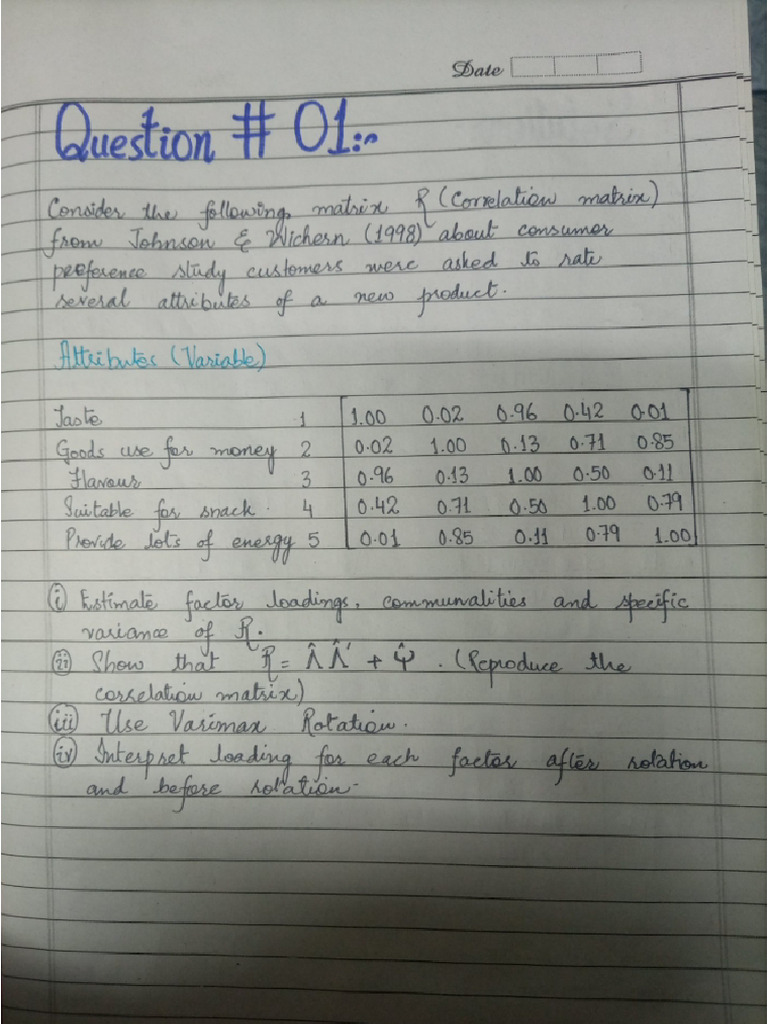 Date
Question # 01:-
Consider the following matrix R (Correlation matrix)
from Johnson & Wichern (1998) about consumer
preference study customers were asked to rate
several attributes of a new product.
Attributes (Variable)
Taste 1 1.00 0.02 0.96 0.42 0.01
Goods use for money 2 0.02 1.00 0.13 0.71 0.85
Flavour 3 0.96 0.13 1.00 0.50 0.11
Suitable for snack. 4 0.42 0.71 0.50 1.00 0.79
Provide lots of energy 5 0.01 0.85 0.11 0.79 1.00
(i) Estimate factor loadings, communalities and specific
variance of R.
(ii) Show that R = Λ̂ Λ̂' + Ψ̂ . (Reproduce the
correlation matrix)
(iii) Use Varimax Rotation.
(iv) Interpret loading for each factor after rotation
and before rotation-